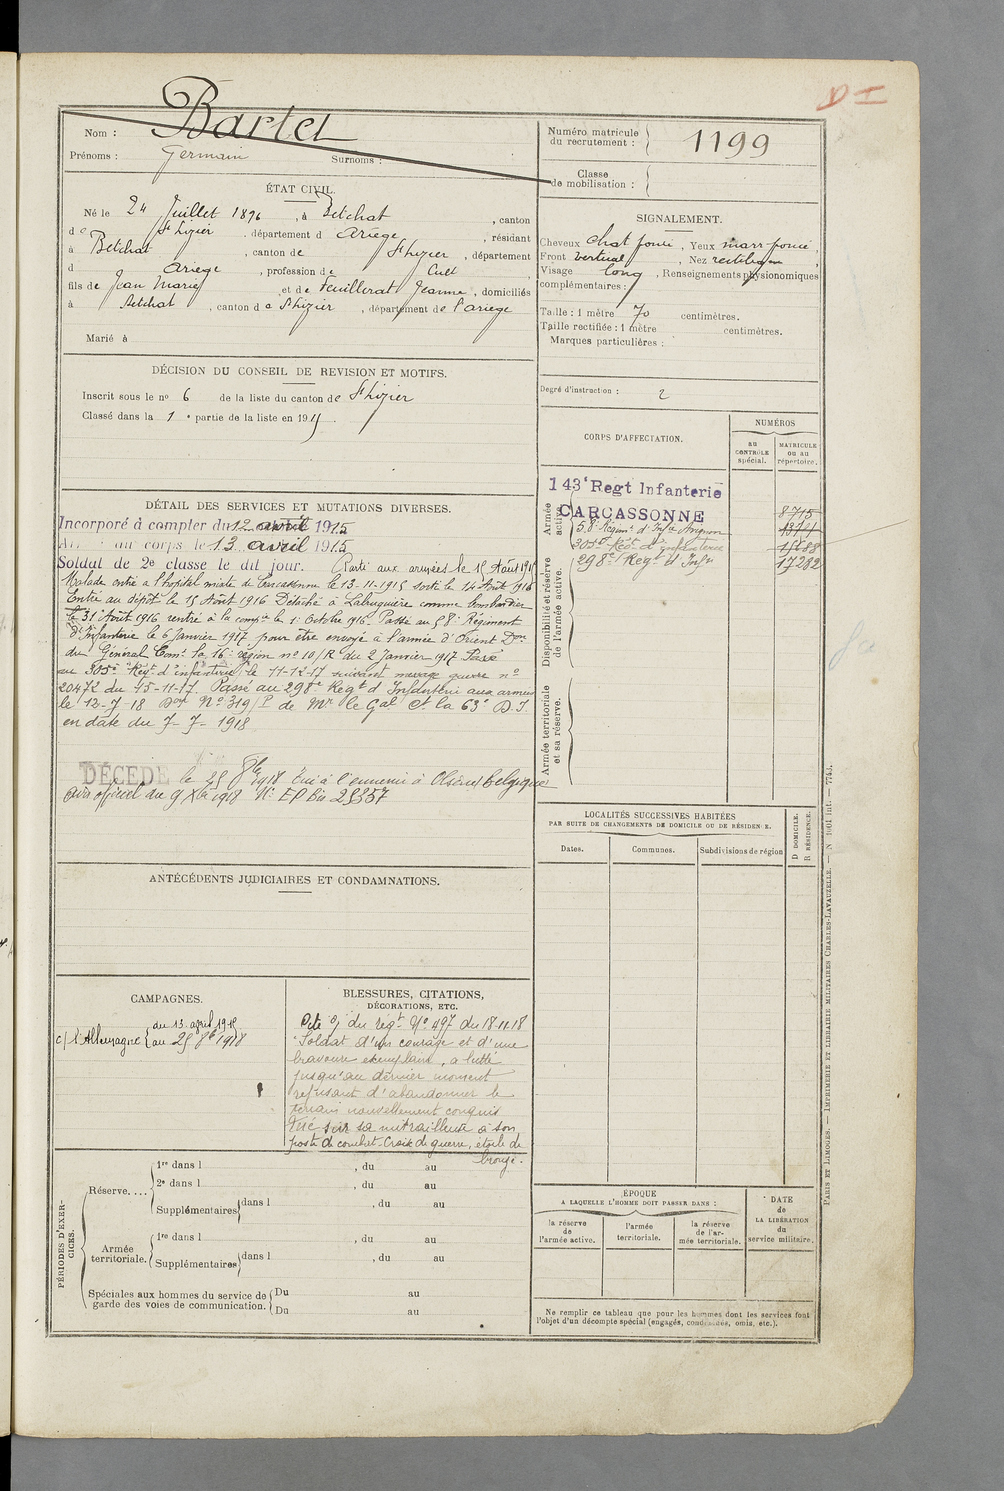 D I
Nom : Bartet
Prénoms : Germain Surnoms :
Numéro matricule du recrutement : 1199
Classe de mobilisation :
ÉTAT CIVIL.
Né le 24 Juillet 1896, à Betchat, canton
de St Lizier, département d Ariège, résidant
à Betchat, canton de St Lizier, département
d Ariège, profession de Cult
fils de Jean Marie et de Feuillerat Jeanne, domiciliés
à Betchat, canton de St Lizier, département de l'ariège
Marié à
SIGNALEMENT.
Cheveux chat foncé, Yeux marr foncé,
Front vertical, Nez rectiligne
Visage long, Renseignements physionomiques
complémentaires :
Taille : 1 mètre 70 centimètres.
Taille rectifiée : 1 mètre centimètres.
Marques particulières :
DÉCISION DU CONSEIL DE REVISION ET MOTIFS.
Inscrit sous le no 6 de la liste du canton de St Lizier
Classé dans la 1 e partie de la liste en 1915.
Degré d'instruction : 2
CORPS D'AFFECTATION.
NUMÉROS
AU CONTRÔLE spécial.
MATRICULE ou au répertoire.
Armée active.
Disponibilité et réserve de l'armée active.
Armée territoriale et sa réserve.
143e Regt Infanterie
CARCASSONNE 8715
58e Régimt d'Infie Avignon
305e Régt d'infanterie
298e Regt d'Infie 17282
DÉTAIL DES SERVICES ET MUTATIONS DIVERSES.
Incorporé à compter du 12 avril 1915
au corps le 13 avril 1915
Soldat de 2e classe le dit jour. Parti aux armées le 15 Août 1915
Malade entré à l'hôpital mixte de Carcassonne le 13-11-1915 sorti le 14 Août 1916
Entré au dépôt le 15 Août 1916 Détaché à Labruguière comme bombardier
le 31 Août 1916 rentré à la compie le 1 Octobre 1916 Passé au 58e Régiment
d'Infanterie le 6 Janvier 1917 pour être envoyé à l'armée d'Orient Don
du Général Comt la 16e région no 10/R du 2 Janvier 1917 Passé
au 305e Régt d'infanterie le 11-12-17 suivant message guerre no
20472 du 15-11-17. Passé au 298e Régt d'Infanterie aux armées
le 12-7-18 Don No 319/P de Mr le Gal Ct la 63e D.I.
en date du 7-7-1918
DÉCÉDÉ le 25 8bre 1918 Tué à l'ennemi à Olsène Belgique
avis officiel du 9 Xbre 1918 No EP Bis 28357
ANTÉCÉDENTS JUDICIAIRES ET CONDAMNATIONS.
LOCALITÉS SUCCESSIVES HABITÉES
PAR SUITE DE CHANGEMENTS DE DOMICILE OU DE RÉSIDENCE.
Dates. Communes. Subdivisions de région
D DOMICILE.
R RÉSIDENCE.
CAMPAGNES.
c/ l'Allemagne du 13 april 1915
au 25 8bre 1918
BLESSURES, CITATIONS,
DÉCORATIONS, ETC.
Cité O/ du régt No 497 du 18-11-18
"Soldat d'un courage et d'une
bravoure exemplaire, a lutté
jusqu'au dernier moment
refusant d'abandonner le
terrain nouvellement conquis
Tué sur sa mitrailleuse à son
poste de combat. Croix de guerre, étoile de
bronze.
PÉRIODES D'EXERCICES.
Réserve.... 1re dans l , du au
2e dans l , du au
Supplémentaires dans l , du au
Armée territoriale. 1re dans l , du au
Supplémentaires dans l , du au
Spéciales aux hommes du service de garde des voies de communication. Du au
Du au
ÉPOQUE
A LAQUELLE L'HOMME DOIT PASSER DANS :
la réserve de l'armée active.
l'armée territoriale.
la réserve de l'armée territoriale.
DATE
de
LA LIBÉRATION
du
service militaire.
Ne remplir ce tableau que pour les hommes dont les services font
l'objet d'un décompte spécial (engagés, condamnés, omis, etc.).
PARIS ET LIMOGES. — IMPRIMERIE ET LIBRAIRIE MILITAIRES CHARLES-LAVAUZELLE. — N 1001 int. — 7743.